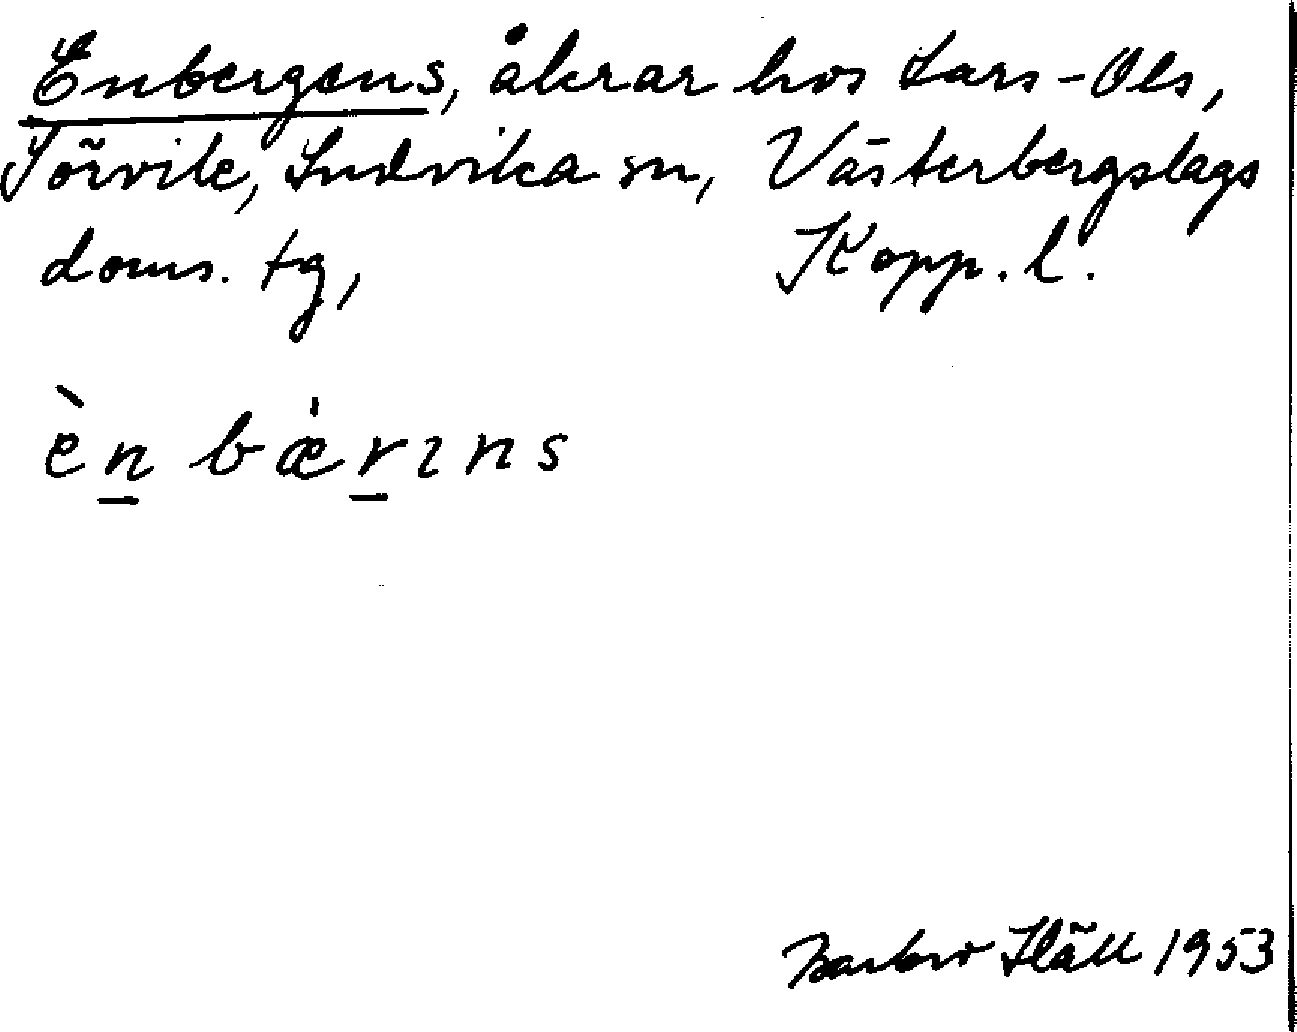 Enbergens, åkrar hos Lars-Ols,
Sörvik, Ludvika sn, Västerbergslags
doms. tg, Kopp. l.
èn bærıns
Barbro Häll 1953